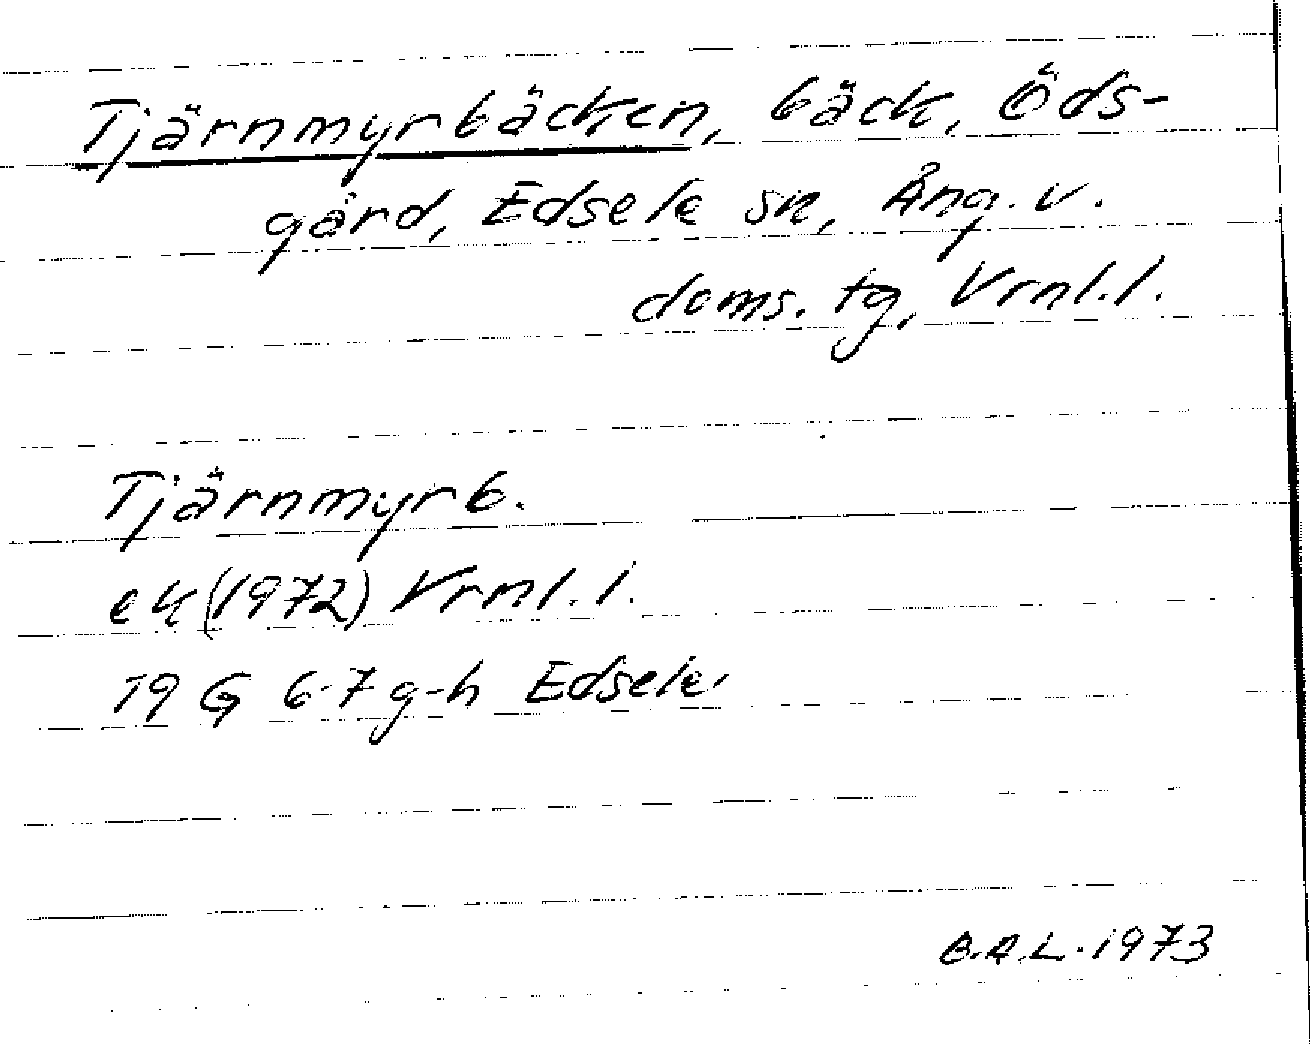 Tjärnmyrbäcken, bäck, Öds-
gård, Edsele sn, Ång. v.
doms. tg, Vrnl.l.
Tjärnmyrb.
ek (1972) Vrnl.l.
19 G 6-7 g-h Edsele
B.A.L. 1973